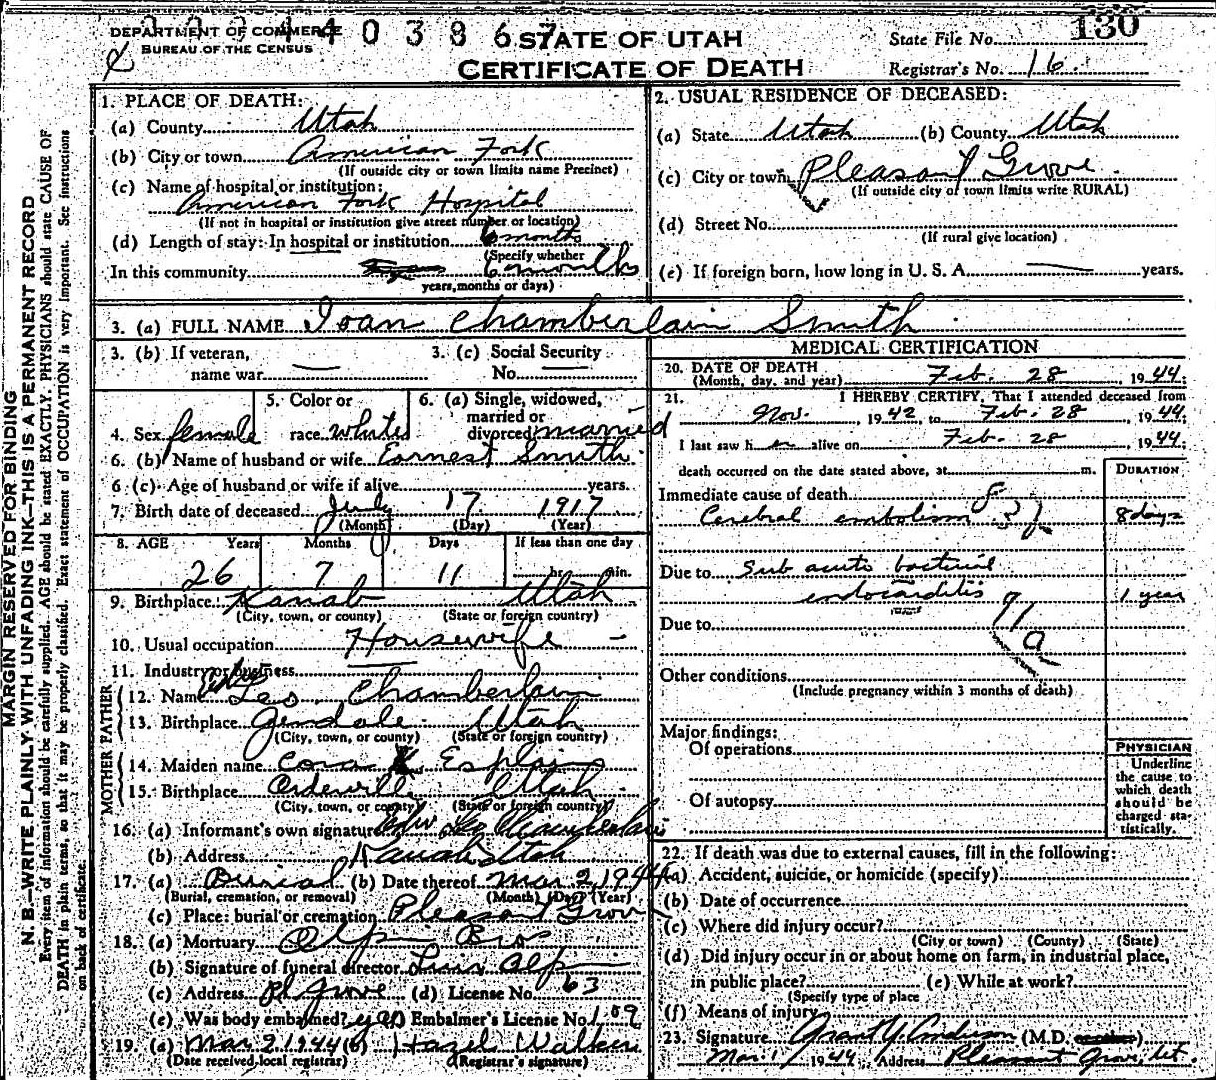 DEPARTMENT OF COMMERCE
BUREAU OF THE CENSUS
STATE OF UTAH
CERTIFICATE OF DEATH
State File No. 130
Registrar's No. 16.
MARGIN RESERVED FOR BINDING
N. B.—WRITE PLAINLY WITH UNFADING INK—THIS IS A PERMANENT RECORD
Every item of information should be carefully supplied. AGE should be stated EXACTLY. PHYSICIANS should state CAUSE OF
DEATH in plain terms, so that it may be properly classified. Exact statement of OCCUPATION is very important. See instructions
on back of certificate.
1. PLACE OF DEATH:
(a) County Utah
(b) City or town American Fork
(If outside city or town limits name Precinct)
(c) Name of hospital or institution:
American Fork Hospital
(If not in hospital or institution give street number or location)
(d) Length of stay: In hospital or institution 6 months
(Specify whether
In this community 6 months
years, months or days)
2. USUAL RESIDENCE OF DECEASED:
(a) State Utah (b) County Utah
(c) City or town Pleasant Grove
(If outside city or town limits write RURAL)
(d) Street No.
(If rural give location)
(e) If foreign born, how long in U. S. A. — years.
3. (a) FULL NAME Joan Chamberlain Smith
3. (b) If veteran,
name war —
3. (c) Social Security
No. —
4. Sex female
5. Color or
race white
6. (a) Single, widowed,
married or
divorced married
6. (b) Name of husband or wife Earnest Smith
6 (c) Age of husband or wife if alive years.
7. Birth date of deceased July 17 1917
(Month) (Day) (Year)
8. AGE Years Months Days If less than one day
26 7 11 hr. min.
9. Birthplace Kanab Utah
(City, town, or county) (State or foreign country)
10. Usual occupation Housewife
11. Industry or business
FATHER
12. Name Leo Chamberlain
13. Birthplace Utah
(City, town, or county) (State or foreign country)
MOTHER
14. Maiden name Cora Esplain
15. Birthplace Orderville Utah
(City, town, or county) (State or foreign country)
16. (a) Informant's own signature Leo Chamberlain
(b) Address Kanab Utah
17. (a) Burial (b) Date thereof Mar 2, 1944
(Burial, cremation, or removal) (Month) (Day) (Year)
(c) Place: burial or cremation Pleasant Grove
18. (a) Mortuary Olpin Bros
(b) Signature of funeral director
(c) Address Pl Grove (d) License No. 63
(e) Was body embalmed? yes Embalmer's License No. 109
19. (a) Mar 2 1944 (b) Hazel Walker
(Date received local registrar) (Registrar's signature)
MEDICAL CERTIFICATION
20. DATE OF DEATH
(Month, day, and year) Feb. 28, 1944.
21. I HEREBY CERTIFY, That I attended deceased from
Nov. , 1942, to Feb. 28 1944.
I last saw her alive on Feb. 28 , 1944.
death occurred on the date stated above, at m.
DURATION
Immediate cause of death
Cerebral embolism 8 days
Due to Sub acute bacterial
endocarditis 1 year
91a
Due to
Other conditions
(Include pregnancy within 3 months of death)
Major findings:
Of operations
Of autopsy
PHYSICIAN
Underline
the cause to
which death
should be
charged sta-
tistically.
22. If death was due to external causes, fill in the following:
(a) Accident, suicide, or homicide (specify)
(b) Date of occurrence
(c) Where did injury occur?
(City or town) (County) (State)
(d) Did injury occur in or about home on farm, in industrial place,
in public place? (e) While at work?
(Specify type of place
(f) Means of injury
23. Signature Grant Y. Anderson (M.D.
Mar. 1 1944 Address Pleasant Grove, Ut.